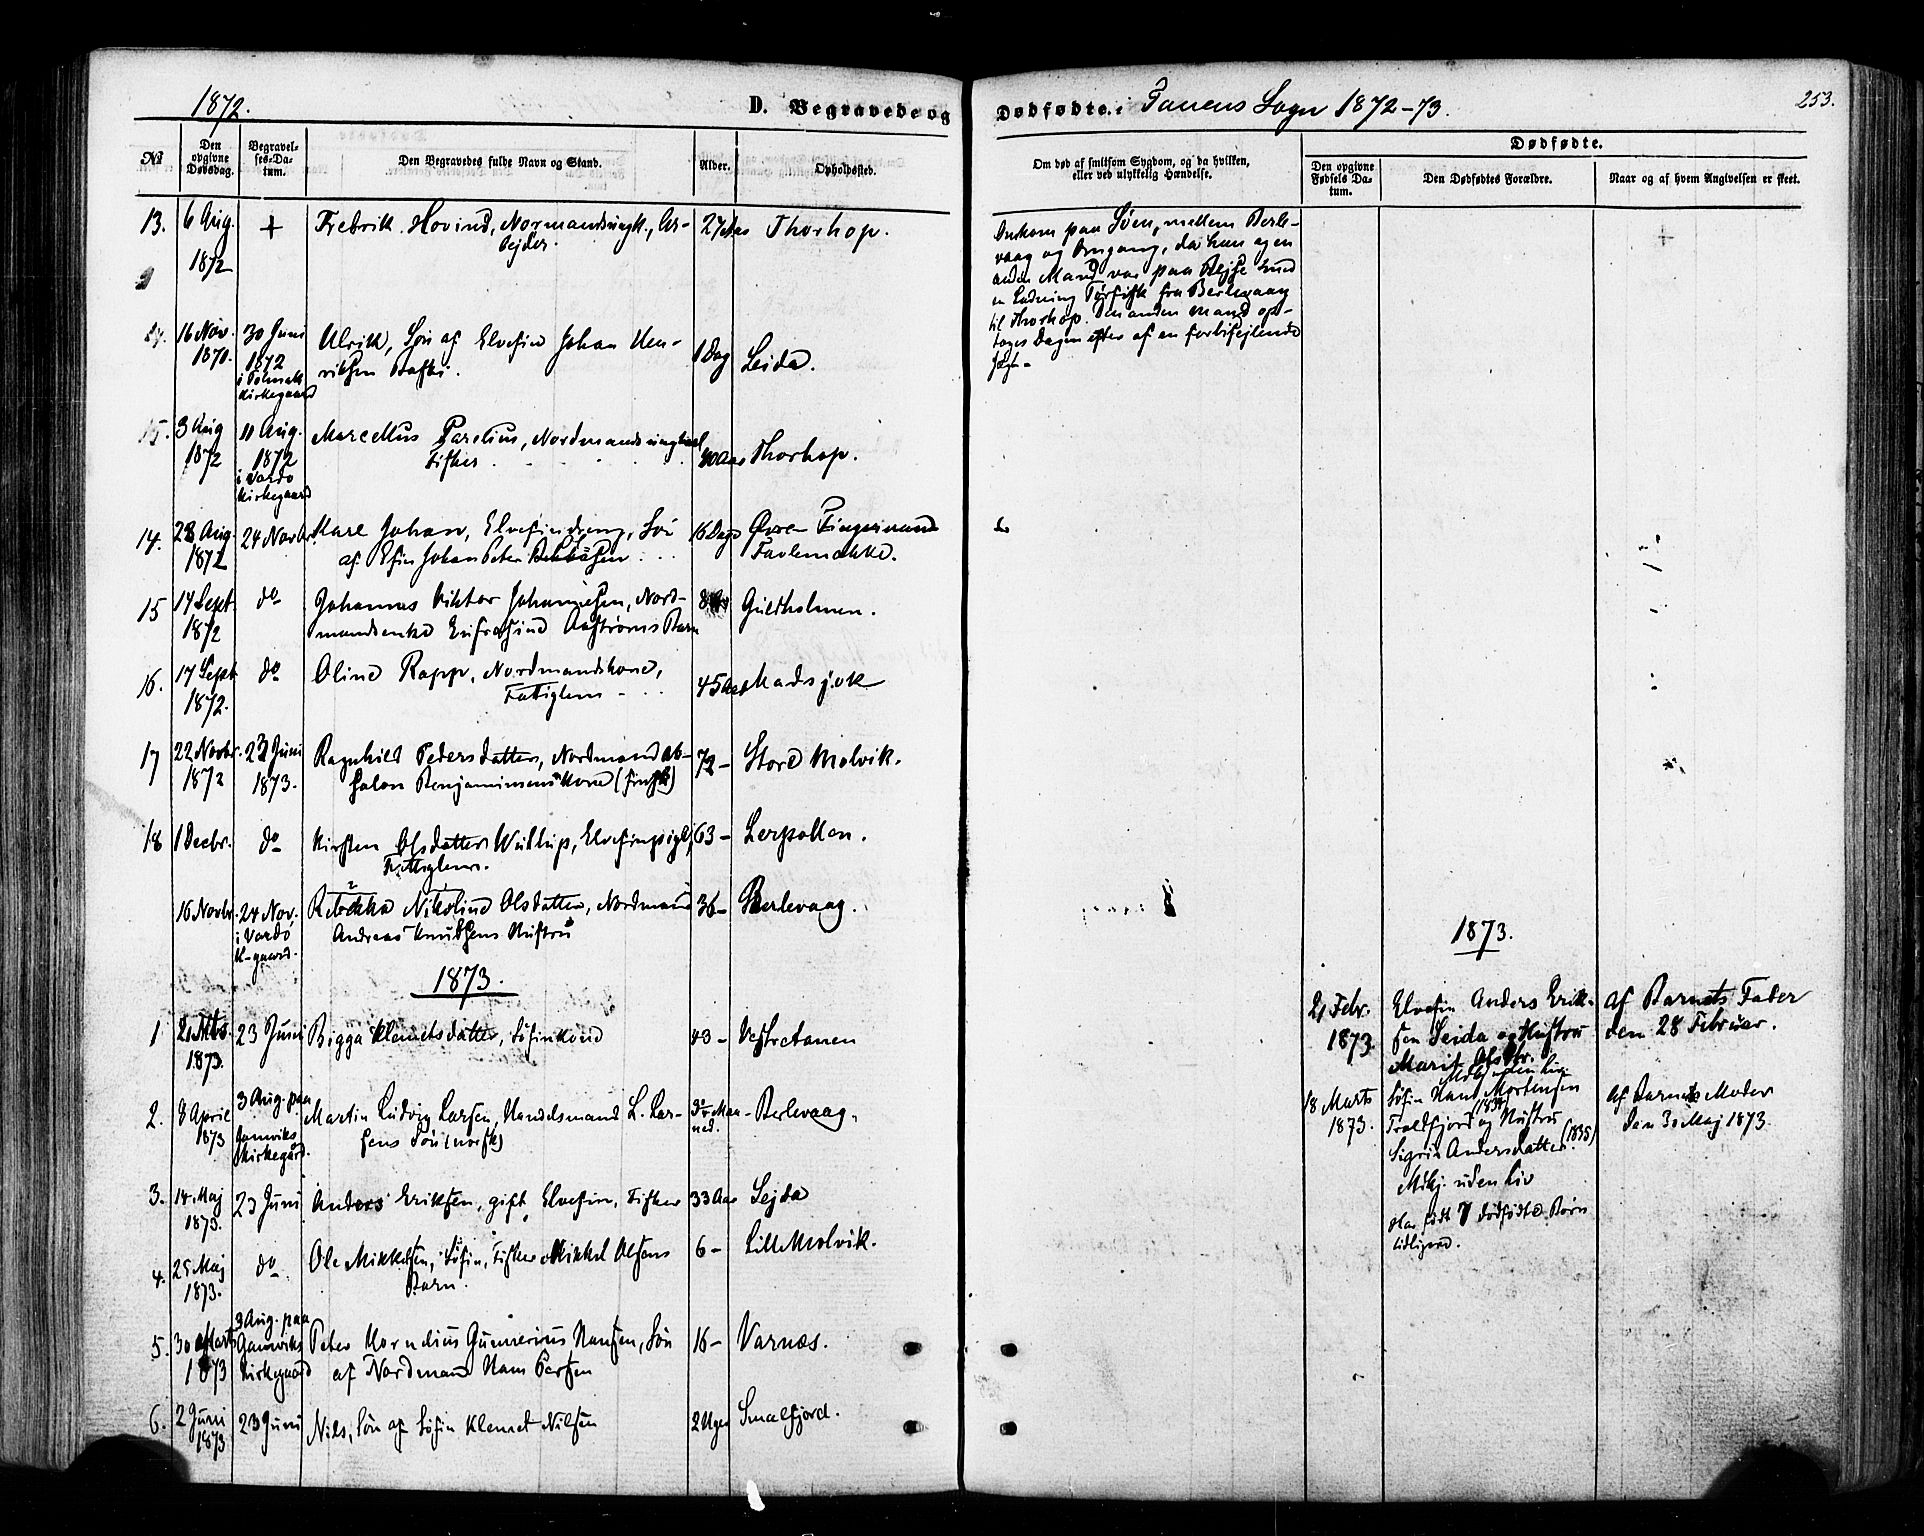 1872.
D. Begravede og
Dødfødte. i Tanens Sogn 1872-73.
253.
No
Den opgivne Dødsdag.
Begravelses-Datum.
Den Begravedes fulde Navn og Stand.
Alder.
Opholdssted.
Om død af smitsom Sygdom, og da hvilken,
eller ved ulykkelig Hændelse.
Dødfødte.
Den opgivne Fødsels Datum.
Den Dødfødtes Forældre.
Naar og af hvem Angivelsen er skeet.
13. 6 Aug. + Fredrik Hovind, Normandsungk., Ar- 27 Aar Thorhop.
1872 bejder.
Omkom paa Søen, mellem Berle-
vaag og Omgang, da han og en
anden Mand var paa Rejse med
en Ladning Tørfisk fra Berlevaag
til Thorhop. Den anden Mand op-
toges Dagen efter af en forbisejlende
14. 16 Nov. 30 Juni Ulrik, Søn af Elvefin Johan Hen- 1 Dag Leida.
1870. 1872 riksen
i Polmak
Kirkegaard
15. 3 Aug 11 Aug. Marcellus Parelius, Nordmandsungkarl 40 Aar Thorhop.
1872 1872 Fisker
i Vardø
Kirkegaard
14. 28 Aug. 24 Novbr. Johan, Elvefindreng, Søn 16 Dage Øvre
1872 af Efin Johan Peter
15 14 Sept do Johannes Viktor Johannesen, Nord- Guldholmen.
1872 mandsenke Barn
16. 17 Sept do Oline Rapp, Nordmandskone, 45 Aar Madsjok
1872. Fattiglem
17 22 Novbr. 23 Juni Ragnhild Pedersdatter, Nordmand Ab- 72 - Store Molvik.
1872 1873. salon Benjaminsens Kone
18 1 Decbr. do Kirsten Olsdatter Wullup, Elvefinpige, 63 - Lerpollen.
Fattiglem.
16 Novbr. 24 Nov. Rebekka Nikoline Olsdatter, Nordmand 36 - Berlevaag.
i Vardø Andreas Knudsens Hustru
K-gaard.
1873.
1 21 23 Juni Bigga Klemetsdatter, Søfinkone 43 - Vestretanen
1873.
2. 8 April 3 Aug. paa Martin Ludvig Larsen, Handelsmand L. Lar- Maa- Berlevaag.
1873 Gamviks sens Søn (norsk) ned.
Kirkegård.
3. 14 Maj 23 Juni Anders Eriksen, gift, Elvefin, Fisker 33 Aar Sejda
1873.
4. 25 Maj do Ole Mikkelsen, Søfin, Fisker Mikkel Olsens 6 - Lille Molvik.
1873. Barn.
5. 30 Marts 3 Aug. paa Peter Gunnerius Hansen, Søn 16 - Varnæs.
1873 Gamviks af Nordmand Hans
Kirkegaard
6. 2 Juni 23 Juni Nils, Søn af Søfin Klemet Nilsen 2 Uger Smalfjord.
1873
1873.
21 Febr. Elvefin Anders Erik- Af Barnets Fader
1873 sen Seida og Hustru den 28 Februar.
Marit Olsdtr.
Mdkj. uden Liv
18 Marts Søfin Hans Mortensen Af Barnets Moder
1873. Troldfjord og Hustru den 30 Maj 1873.
Sigrid Andersdatter. (1835)
Mdkj. uden Liv
Har født 7 dødfødte Børn
tidligere.